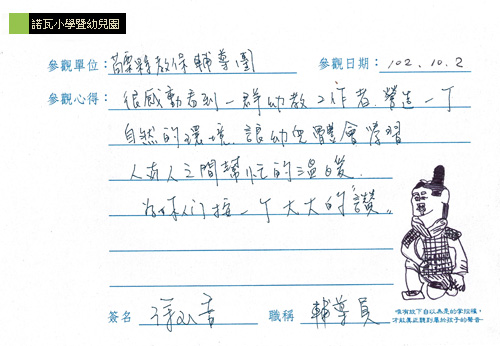 諾瓦小學暨幼兒園
參觀單位：苗栗縣教保輔導團 參觀日期：102.10.2
參觀心得：很感動看到一群幼教工作者.營造一個
自然的環境.讓幼兒體會學習
人與人之間幫忙的溫暖.
為你們按一個大大的讚"
簽名 職稱 輔導員
唯有放下自以為是的掌控權，
才能真正聽到屬於孩子的聲音